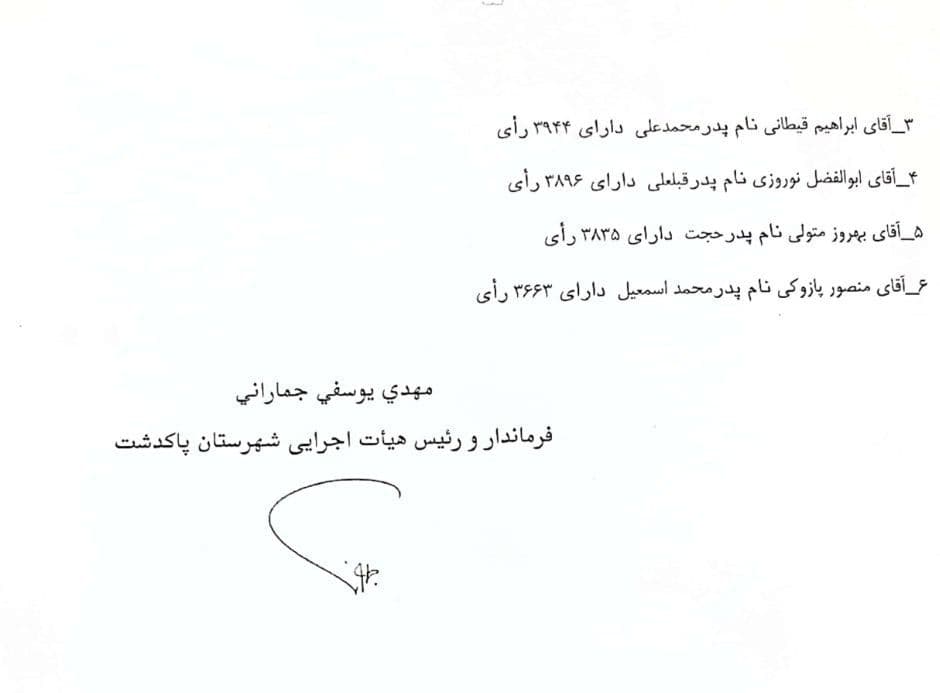 ۳_آقای ابراهیم قیطانی نام پدرمحمدعلی دارای ۳۹۴۴ رأی
۴_آقای ابوالفضل نوروزی نام پدرقبلعلی دارای ۳۸۹۶ رأی
۵_آقای بهروز متولی نام پدرحجت دارای ۳۸۳۵ رأی
۶_آقای منصور پازوکی نام پدرمحمد اسمعیل دارای ۳۶۶۳ رأی
مهدي يوسفي جماراني
فرماندار و رئیس هیأت اجرایی شهرستان پاکدشت